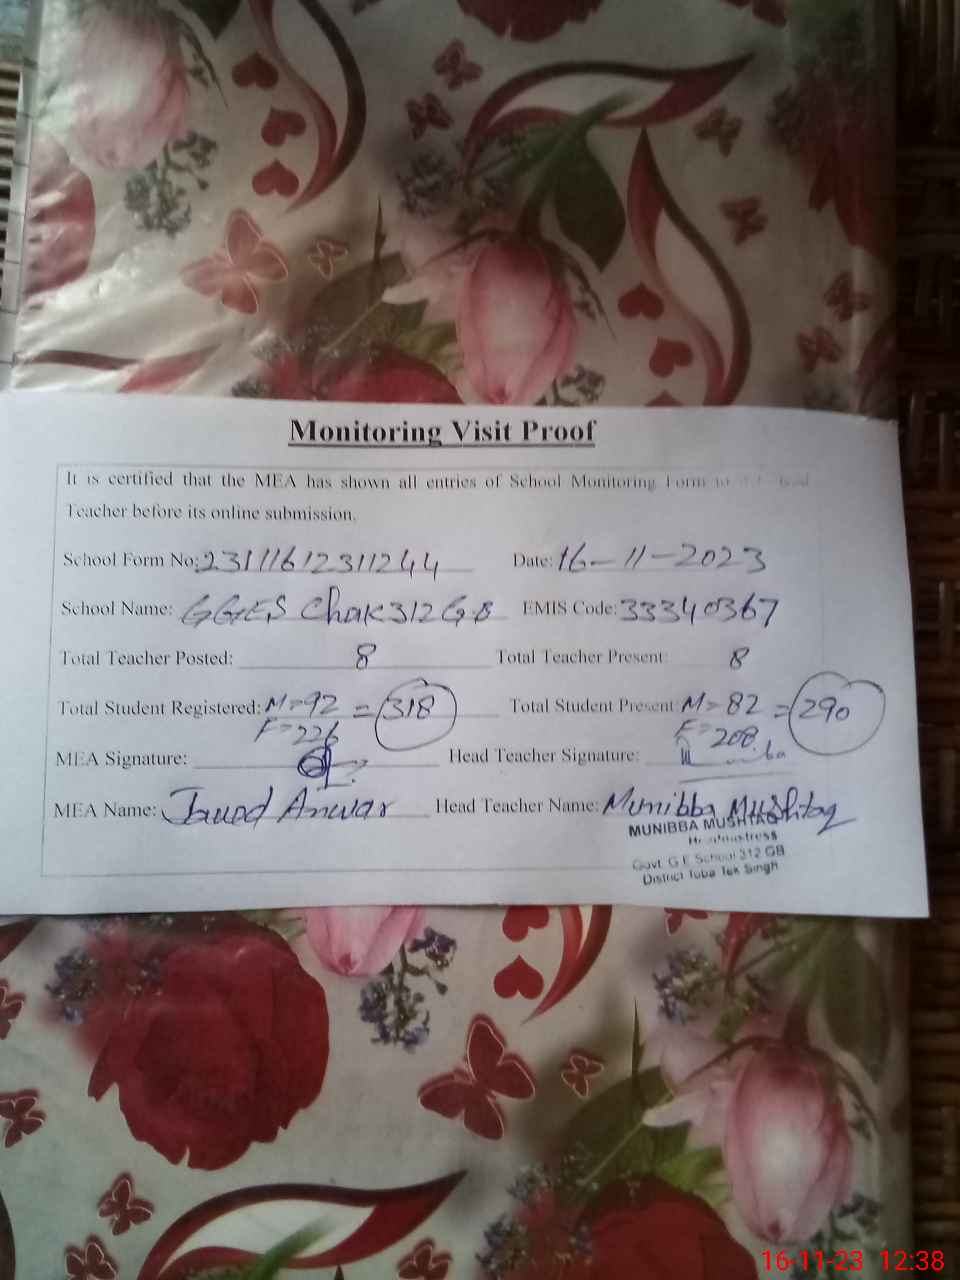 Monitoring Visit Proof
It is certified that the MEA has shown all entries of School Monitoring Form to
Teacher before its online submission.
School Form No: 23111612311244 Date: 16-11-2023
School Name: GGES Chak 312 GB EMIS Code: 33340367
Total Teacher Posted: 8 Total Teacher Present: 8
Total Student Registered: M=92 = 318 Total Student Present M=82 = 290
F=226 F=208
MEA Signature: Head Teacher Signature:
MEA Name: Javed Anwar Head Teacher Name: Munibba Mushtaq
MUNIBBA MUSHTAQ
Headmistress
Govt. G.E School 312 GB
District Toba Tek Singh
16-11-23 12:38